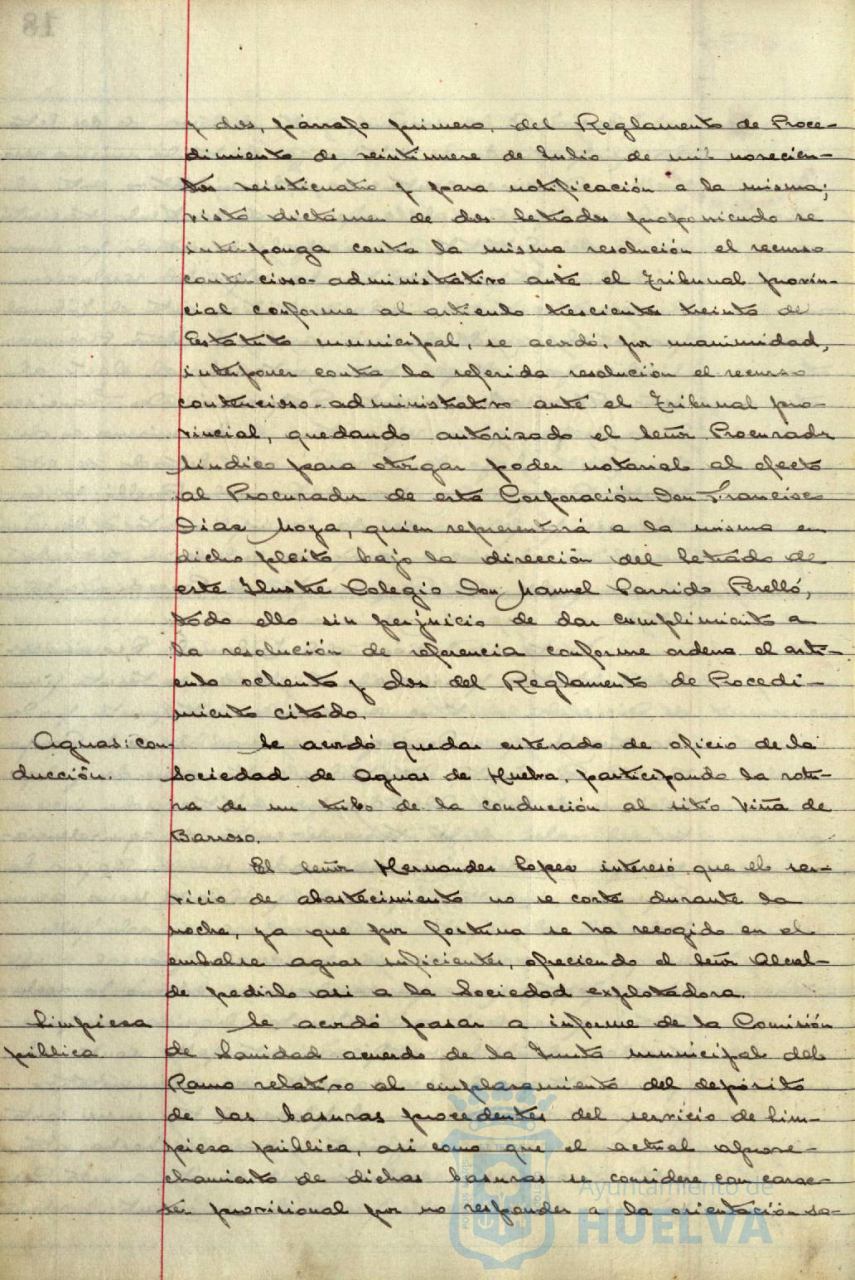 y dos, párrafo primero, del Reglamento de Proce-
dimiento de veintinueve de Julio de mil novecien-
tos veinticuatro y para notificación a la misma;
visto dictámen de dos letrados proponiendo se
interponga contra la misma resolución el recurso
contencioso-administrativo ante el Tribunal provin-
cial conforme al artículo trescientos treinta de
Estatuto municipal, se acordó, por unanimidad,
interponer contra la referida resolución el recurso
contencioso-administrativo ante el Tribunal pro-
vincial, quedando autorizado el Señor Procurador
Síndico para otorgar poder notarial al efecto
al Procurador de esta Corporación Don Francisco
Díaz Moya, quien representará a la misma en
dicho pleito bajo la dirección del Letrado de
este Ilustre Colegio Don Manuel Garrido Perelló,
todo ello sin perjuicio de dar cumplimiento a
la resolución de referencia conforme ordena el artí-
culo ochenta y dos del Reglamento de Procedi-
miento citado.
Aguas: con-
ducción.
Se acordó quedar enterado de oficio de la
Sociedad de Aguas de Huelva, participando la rotu-
ra de un tubo de la conducción al sitio Viña de
Barroso.
El Señor Hernandez Lopez interesó que el ser-
vicio de abastecimiento no se corte durante la
noche, ya que por fortuna se ha recogido en el
embalse aguas suficientes, ofreciendo el Señor Alcal-
de pedirlo asi a la Sociedad explotadora.
Limpieza
pública
Se acordó pasar a informe de la Comisión
de Sanidad acuerdo de la Junta municipal del
Ramo relativo al emplazamiento del depósito
de las basuras procedentes del servicio de lim-
pieza pública, asi como que el actual aprove-
chamiento de dichas basuras se considere con carac-
ter provisional por no responder a la orientación sa-
18
Ayuntamiento de
HUELVA